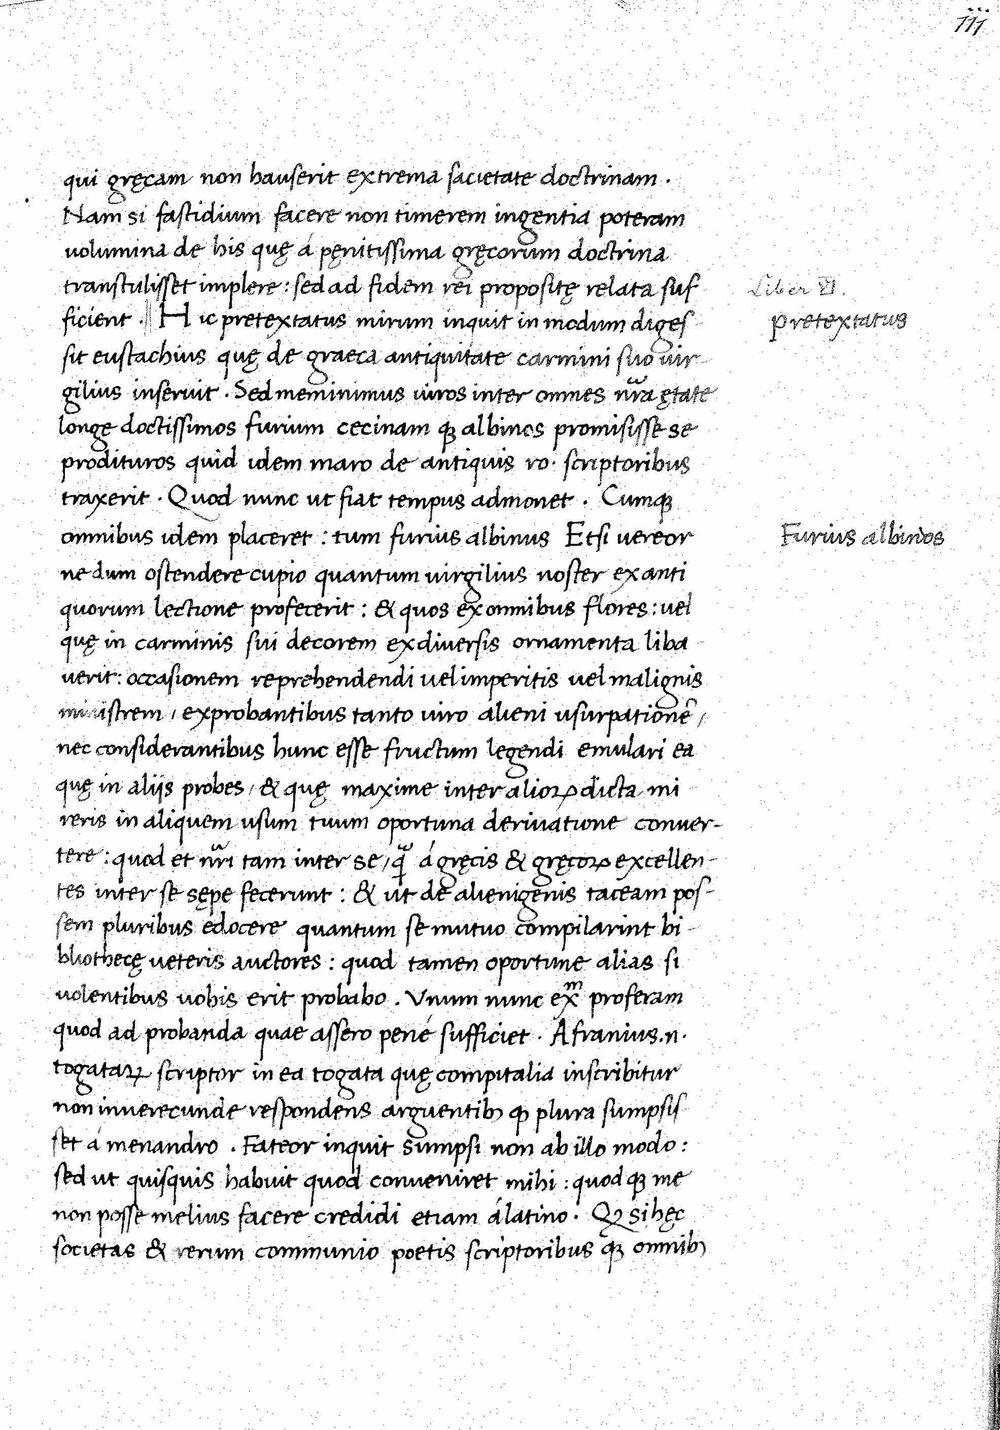 iii
qui gręcam non hauserit extrema sacietate doctrinam .
Nam si fastidium facere non timerem ingentia poteram
uolumina de his quę á pęnitissima gręcorum doctrina
transtulisset implere : sed ad fidem rei propositę relata suf
Liber VI .
ficient . Hic pretextatus mirum inquit in modum diges
pretextatus
sit eustachius quę de graeca antiquitate carmini suo uir
gilius inseruit . Sed meminimus uiros inter omnes nr̃a ętate
longe doctissimos furium cecinam qꝫ albinos promisisse se
prodituros quid idem maro de antiquis ro . scriptoribus
traxerit . Quod nunc ut fiat tempus admonet . Cumqꝫ
omnibus idem placeret : tum furius albinus Etsi uereor
Furius albinos
ne dum ostendere cupio quantum uirgilius noster ex anti
quorum lectione profecerit : & quos ex omnibus flores : uel
quę in carminis sui decorem ex diuersis ornamenta liba
uerit : occasionem reprehendendi uel imperitis uel malignis
ministrem , exprobantibus tanto uiro alieni usurpationẽ ,
nec considerantibus hunc esse fructum legendi emulari ea
quę in aliis probes , & quę maxime inter alioꝝ dicta mi
reris in aliquem usum tuum oportuna deriuatione conuer-
tere : quod et nr̃i tam inter se , q̃ á gręcis & gręcoꝝ excellen-
tes inter se sępe fecerunt : & ut de alienigenis taceam pos-
sem pluribus edocere quantum se mutuo compilarint bi-
bliothecę ueteris auctores : quod tamen oportune alias si
uolentibus uobis erit probabo . Vnum nunc exᵐ proferam
quod ad probanda quae assero pené sufficiet . Afranius .n .
togataꝝ scriptor in ea togata quę compitalia inscribitur
non inuerecunde respondens arguentibꝫ qꝫ plura sumpsis
set á menandro . Fateor inquit sumpsi non ab illo modo :
sed ut quisquis habuit quod conueniret mihi : quod qꝫ me
non posse melius facere credidi etiam á latino . Qꝫ si hęc
societas & rerum communio poetis scriptoribus qꝫ omnibꝫ